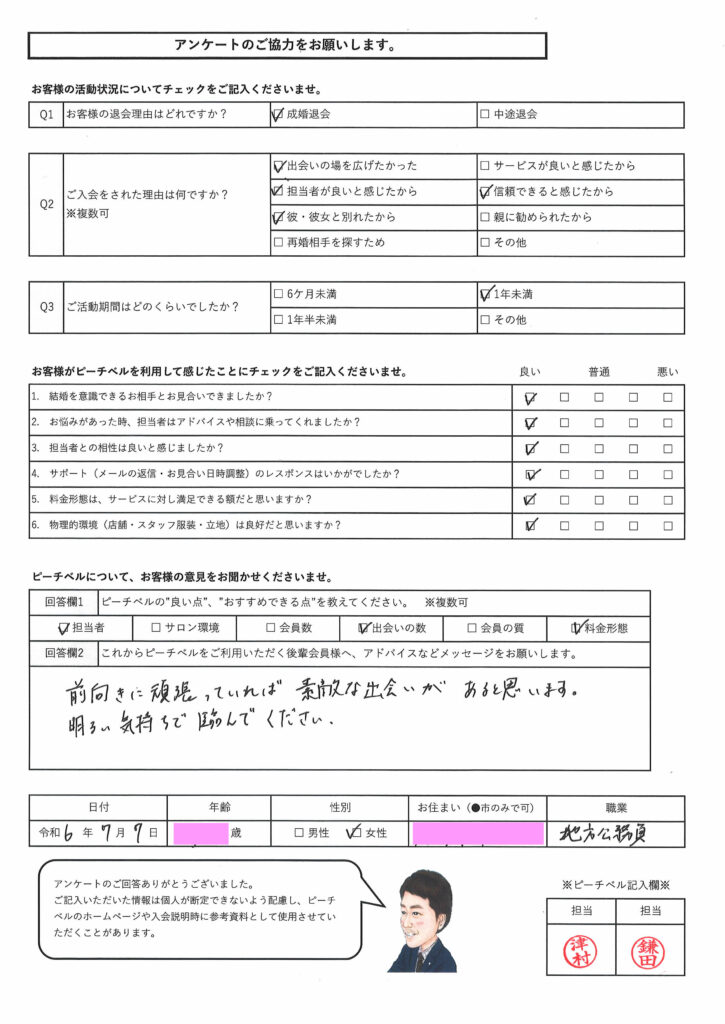 アンケートのご協力をお願いします。
お客様の活動状況についてチェックをご記入くださいませ。
Q1 お客様の退会理由はどれですか？ ☑成婚退会 ☐中途退会
Q2 ご入会をされた理由は何ですか？ ※複数可
☑出会いの場を広げたかった ☐サービスが良いと感じたから
☑担当者が良いと感じたから ☑信頼できると感じたから
☑彼・彼女と別れたから ☐親に勧められたから
☐再婚相手を探すため ☐その他
Q3 ご活動期間はどのくらいでしたか？
☐6ケ月未満 ☑1年未満
☐1年半未満 ☐その他
お客様がピーチベルを利用して感じたことにチェックをご記入くださいませ。 良い 普通 悪い
1. 結婚を意識できるお相手とお見合いできましたか？ ☑ ☐ ☐ ☐ ☐
2. お悩みがあった時、担当者はアドバイスや相談に乗ってくれましたか？ ☑ ☐ ☐ ☐ ☐
3. 担当者との相性は良いと感じましたか？ ☑ ☐ ☐ ☐ ☐
4. サポート（メールの返信・お見合い日時調整）のレスポンスはいかがでしたか？ ☑ ☐ ☐ ☐ ☐
5. 料金形態は、サービスに対し満足できる額だと思いますか？ ☑ ☐ ☐ ☐ ☐
6. 物理的環境（店舗・スタッフ服装・立地）は良好だと思いますか？ ☑ ☐ ☐ ☐ ☐
ピーチベルについて、お客様の意見をお聞かせくださいませ。
回答欄1 ピーチベルの"良い点"、"おすすめできる点"を教えてください。 ※複数可
☑担当者 ☐サロン環境 ☐会員数 ☑出会いの数 ☐会員の質 ☑料金形態
回答欄2 これからピーチベルをご利用いただく後輩会員様へ、アドバイスなどメッセージをお願いします。
前向きに頑張っていれば 素敵な出会いが あると思います。
明るい気持ちで 臨んでください.
日付 年齢 性別 お住まい（●市のみで可） 職業
令和6年7月7日 歳 ☐男性 ☑女性 地方公務員
アンケートのご回答ありがとうございました。
ご記入いただいた情報は個人が断定できないよう配慮し、ピーチ
ベルのホームページや入会説明時に参考資料として使用させてい
ただくことがあります。
※ピーチベル記入欄※
担当 担当
津村 鎌田